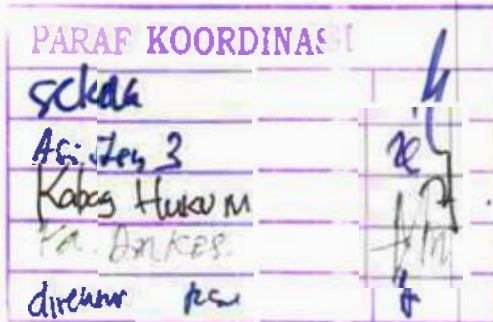 PARAF KOORDINASI
Sekda
Asisten 3
Kabag Hukum
Ka. Dinkes.
direktur